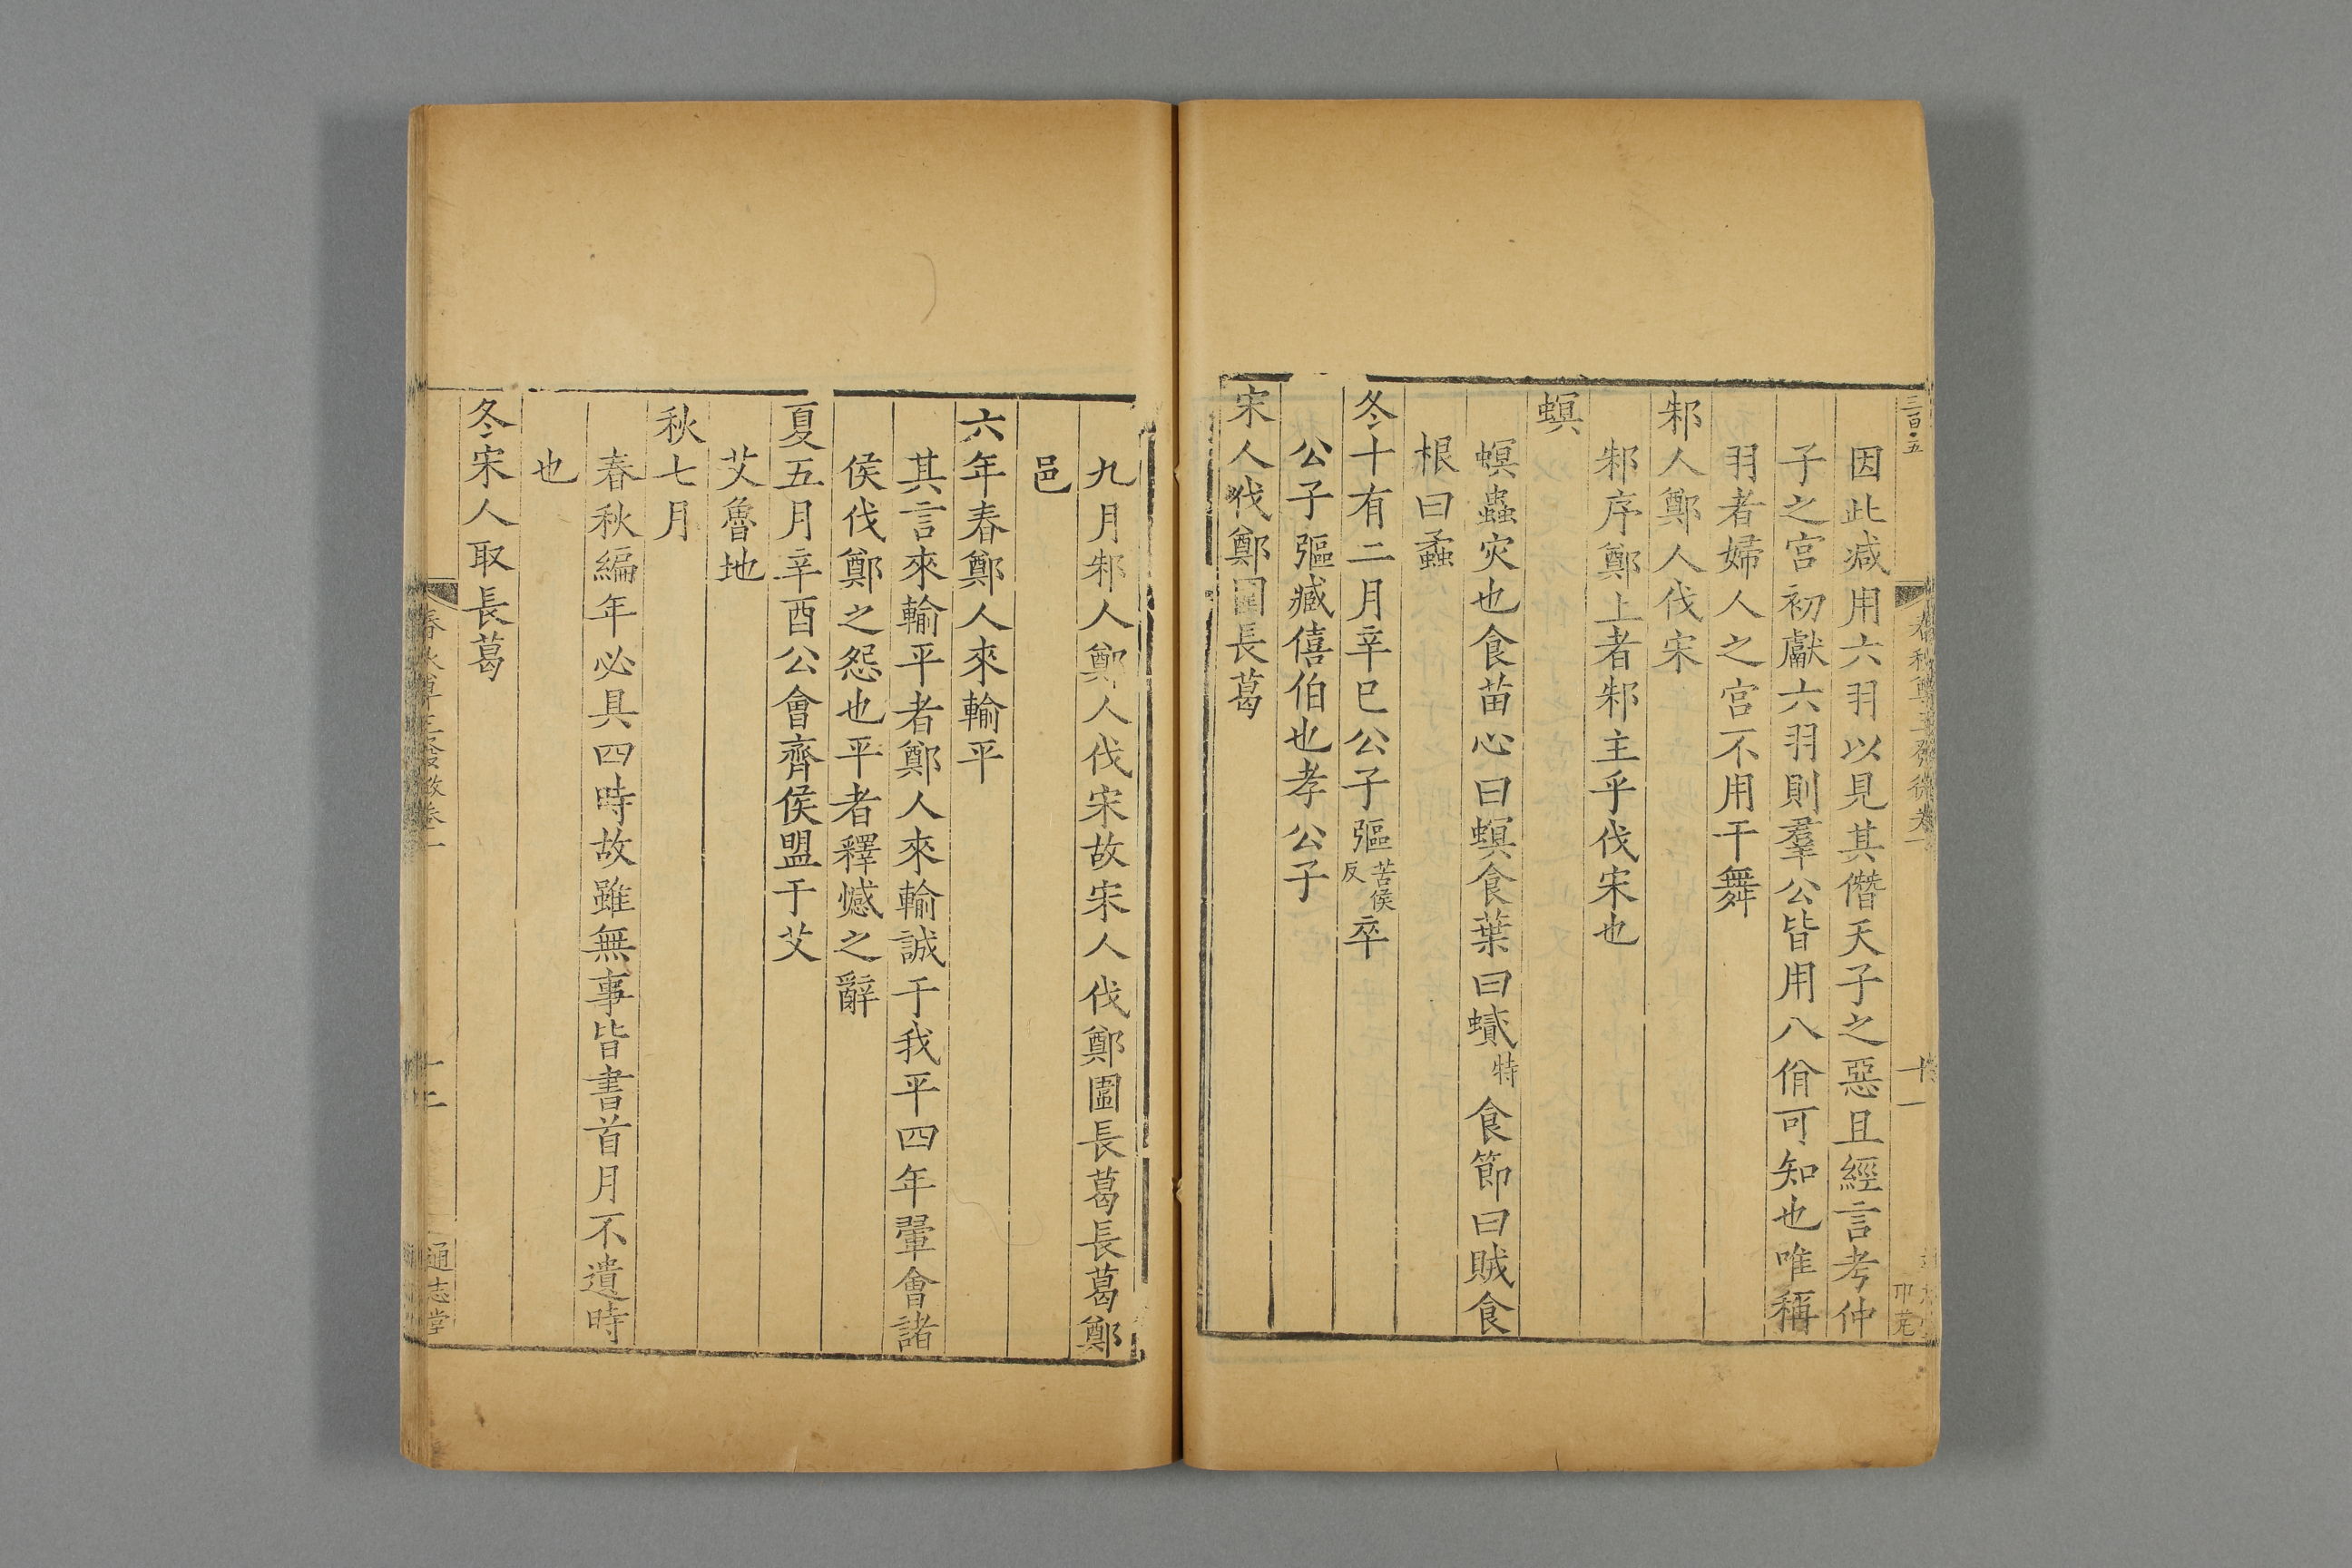 三百五
春秋尊王發微卷一
十一
因此減用六羽以見其僭天子之惡且經言考仲
子之宮初獻六羽則羣公皆用八佾可知也唯稱
羽者婦人之宮不用干舞
邾人鄭人伐宋
邾序鄭上者邾主乎伐宋也
螟
螟蟲灾也食苗心曰螟食葉曰蟘特食節曰賊食
根曰蟊
冬十有二月辛巳公子彄苦侯反卒
公子彄臧僖伯也孝公子
宋人伐鄭圍長葛
九月邾人鄭人伐宋故宋人伐鄭圍長葛長葛鄭
邑
六年春鄭人來輸平
其言來輸平者鄭人來輸誠于我平四年翬會諸
侯伐鄭之怨也平者釋憾之辭
夏五月辛酉公會齊侯盟于艾
艾魯地
秋七月
春秋編年必具四時故雖無事皆書首月不遺時
也
冬宋人取長葛
春秋尊王發微卷一
十二
通志堂